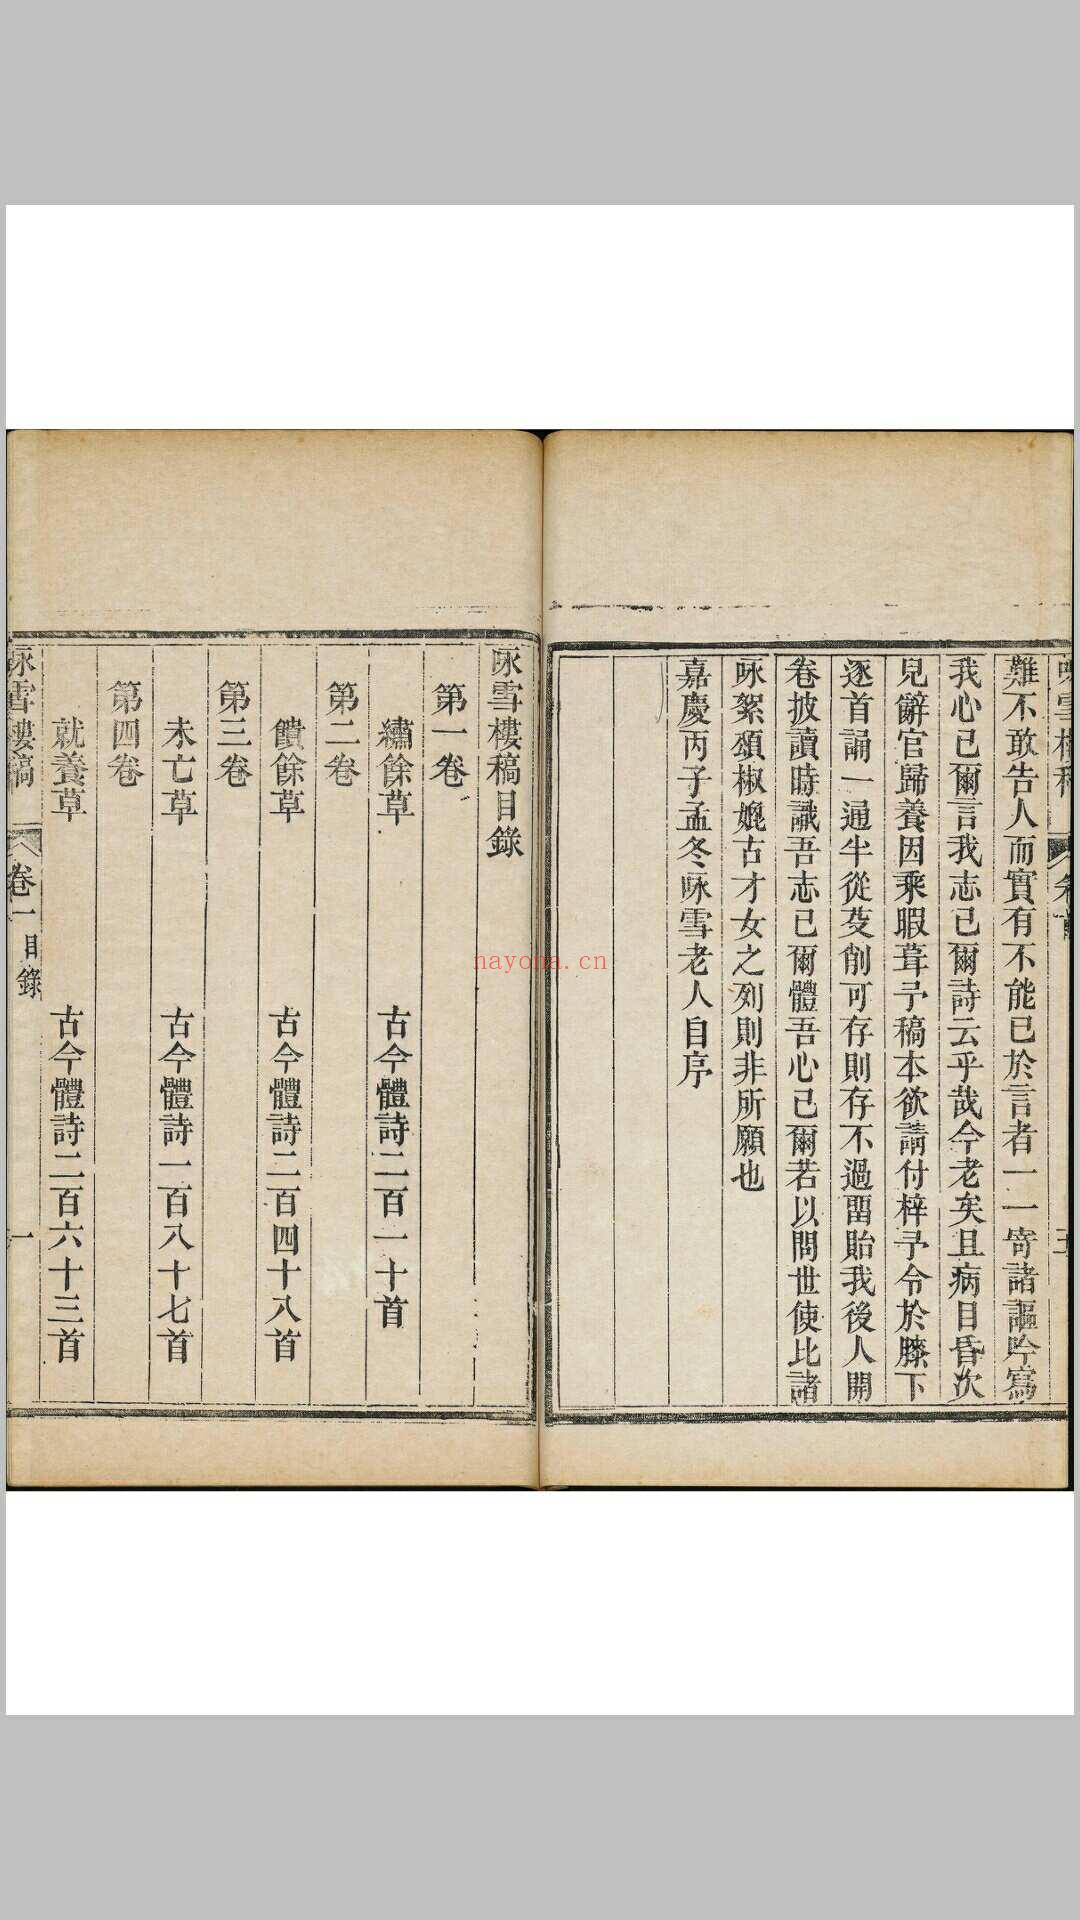 難不敢告人而實有不能已於言者一一寄諸謳吟寫
我心已爾言我志已爾詩云乎哉今老矣且病目昏次
兒辭官歸養因乘暇葺予稿本欲請付梓予令於膝下
逐首誦一通半從芟削可存則存不過畱貽我後人開
卷披讀時識吾志已爾體吾心已爾若以問世使比諸
咏絮頌椒媲古才女之列則非所願也
嘉慶丙子孟冬咏雪老人自序
咏雪樓稿目錄
第一卷
繡餘草 古今體詩二百一十首
第二卷
饋餘草 古今體詩二百四十八首
第三卷
未亡草 古今體詩一百八十七首
第四卷
就養草 古今體詩二百六十三首
咏雪樓稿 卷一目錄 一
nayona.cn